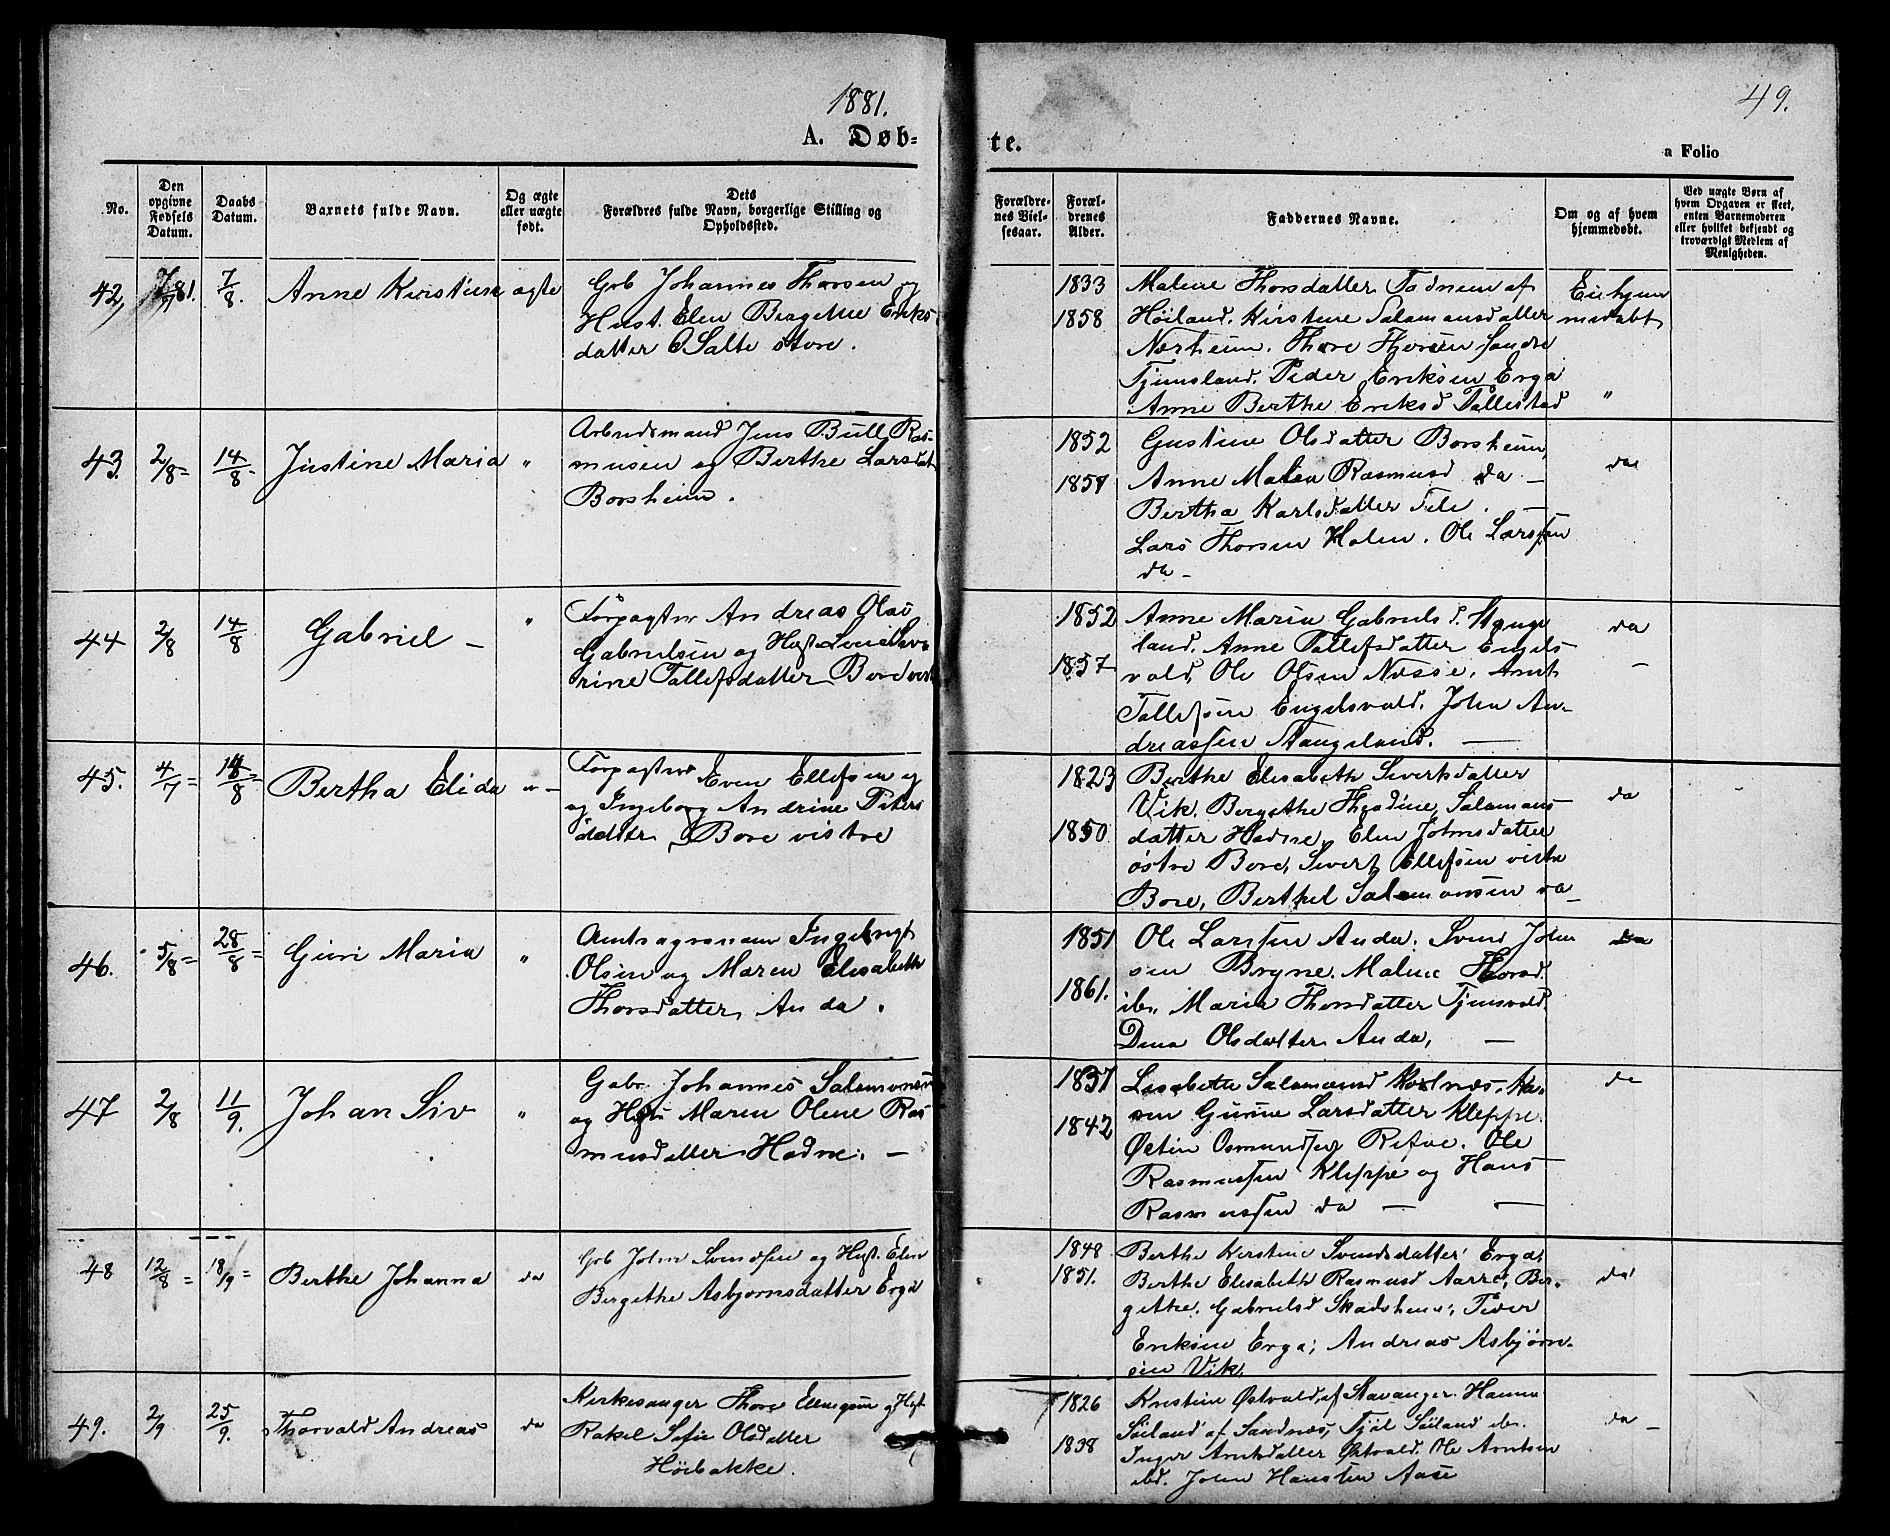 1881.
49.
A. Døb-
te.
a Folio
No.
Den
opgivne
Fødsels
Datum.
Daabs
Datum.
Barnets fulde Navn.
Og ægte
eller uægte
født.
Dets
Forældres fulde Navn, borgerlige Stilling og
Opholdssted.
Forældre-
nes Viel-
sesaar.
Foræl-
drenes
Alder.
Faddernes Navne.
Om og af hvem
hjemmedøbt.
Ved uægte Børn af
hvem Opgaven er skeet,
enten Barnemoderen
eller hvilket bekjendt og
troværdigt Medlem af
Menigheden.
42, 7/7 81. 7/8. Anne Kirstine ægte
Gbr Johannes Thorsen og
Hust. Elen Bergette Eriks
datter Salte store.
1833
1858
Malene Thorsdatter Todnem af
Höiland. Kirstine Salamonsdatter
Nærheim. Thore Thorsen Søndre
Tjemsland. Peder Eriksen Erga
Anne Berthe Eriksd Tollestad
Ei hjem
medøbt
"
43. 2/8 = 14/8 - Justine Maria "
Arbeidsmand Jens Bull Ras-
musen og Berthe Larsdat
Borsheim.
1852
1857
Gustine Olsdatter Borsheim,
Anne Malea Rasmusd da -
Bertha Karlsdatter Tele. -
Lars Thorsen Holen. Ole Larssen
da -
da
44 2/8 14/8 Gabriel - "
Forpagter Andreas Olaus
Gabrielsen og Hust Lovise Seve
rine Tollefsdatter Bore vest
1852
1857
Anne Maria Gabriels d. Stange
land. Anne Tollefsdatter Engels-
vold, Ole Olsen Næsse, Arnt
Tollefsen Engelsvold. John An-
dreassen Stangeland. -
da
-
45. 4/7 = 14/8 = Bertha Elida " -
Forpagter Even Ellefsen og
og Ingeborg Andrine Peters
datter Bore vestre
1823
1850
Berthe Elisabeth Siverksdatter
Vik. Bergethe Theodine Salamons
datter Hodne, Elen Johnsdatter
østre Bore, Sivert Ellefsen vestre
Bore, Berthel Salamonsen da -
da
46. 5/8 = 28/8 = Guri Maria "
Amtsagronom Ingebregt
Olsen og Maren Elisabeth
Thorsdatter Anda.
1851
1861.
Ole Larssen Anda. Svend John
sen Bryne. Malene Thorsd.
ibr. Maria Thorsdatter Tjensvold.
Dina Olsdatter Anda, -
da
47 2/8 11/9. Johan Siv "
Gabr. Johannes Salamonsen
og Hust Maren Olene Ras
musdatter Hodne. -
1837
1842
Lisabeth Salamonsd Kolnæs. Ka-
ren Gurine Larsdatter Kleppe.
Østen Osmundsen Refve. Ole
Rasmussen Kleppe og Hans
Rasmussen da - -
da
48 12/8 = 18/9 = Berthe Johanna da
Gbr John Svendsen og Hust. Elen
Bergithe Asbjørnsdatter Erga
1848
1851.
Berthe Kerstine Svendsdatter Erga;
Berthe Elisabeth Rasmusd Aarre; Ber-
gethe Gabrielsd Skadsheim; Peder
Eriksen Erga; Andreas Asbjørn-
sen Vik.
da
49. 2/9 25/9. Thorvald Andreas da
Kirkesanger Thore Ellingsen og Hust
Rakel Sofie Olsdatter
Höibakke.
1826
1838
Kristine Østvold, af Stavanger. Hanna
Söiland af Sandnæs, Tjöl Söiland ibr.
Inger Arntsdatter Østvold. Ole Arntsen
ibd. John Hanssen Aase
da -